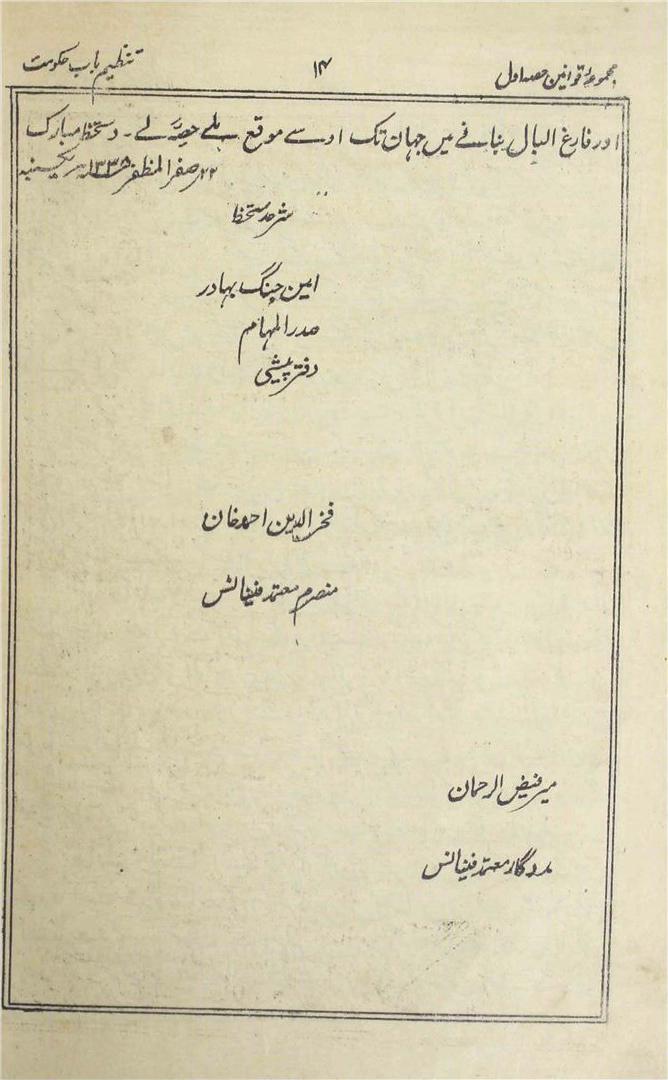 مجموعۂ قوانین حصہ اول ۱۴ تنظیم باب حکومت
اور فارغ البال بنانے میں جہان تک اوسے موقع ملے حصہ لے۔ دستخط مبارک
۲۲ صفر المظفر ۱۳۳۸ھ یکشنبہ
شرحدستخط
امین جنگ بہادر
صدر المہام
دفتر پیشی
فخر الدین احمد خان
منصرم معتمد فینانس
میر فیض الرحمان
مددگار معتمد فینانس